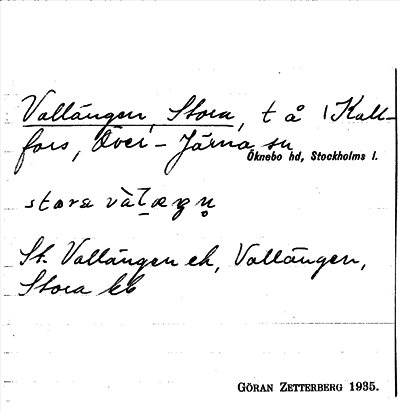 Vallängen, Stora, t å \ Kall-
fors, Över-Järna sn
Öknebo hd, Stockholms l.
stora
St. Vallängen ek, Vallängen,
Stora kb
GÖRAN ZETTERBERG 1935.